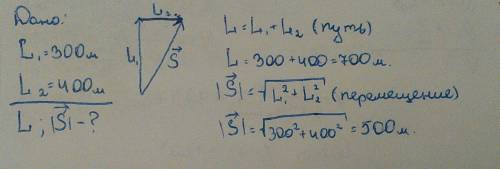 Дано:
L₁=300м
L₂=400м
L; |S⃗|-?
L₂
L₁
S⃗
L=L₁+L₂ (путь)
L=300+400=700м.
|S⃗|=√L₁²+L₂² (перемещение)
|S⃗|=√300²+400²=500м.